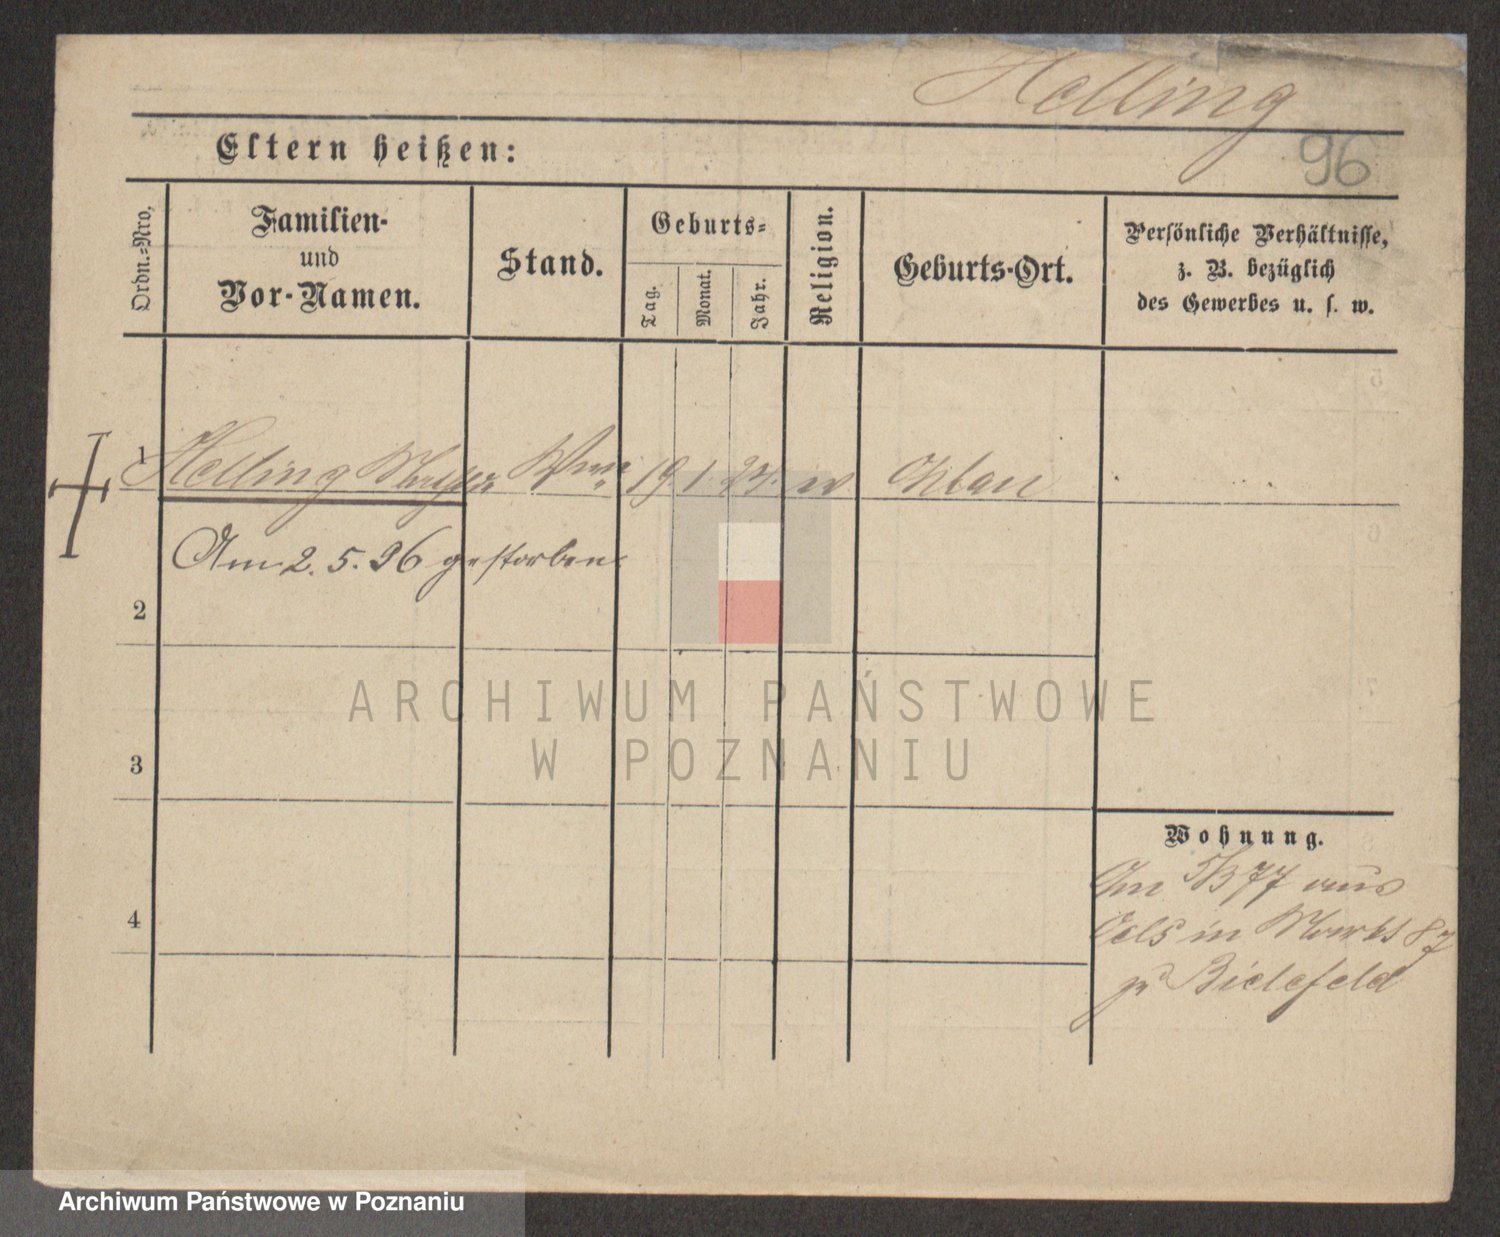 Helling
96
Eltern heißen:
Ordn.-Nro.
Familien-
und
Vor-Namen.
Stand.
Geburts-
Tag.
Monat.
Jahr.
Religion.
Geburts-Ort.
Persönliche Verhältnisse,
z. B. bezüglich
des Gewerbes u. s. w.
1 Helling Wwe 19 1 Ohlau
Am 2. 5. 96 gestorben.
2
3
4
Wohnung.
Am 5/3 77 aus
Oels in Markt 87
zu Bielefeld
ARCHIWUM PAŃSTWOWE
W POZNANIU
Archiwum Państwowe w Poznaniu